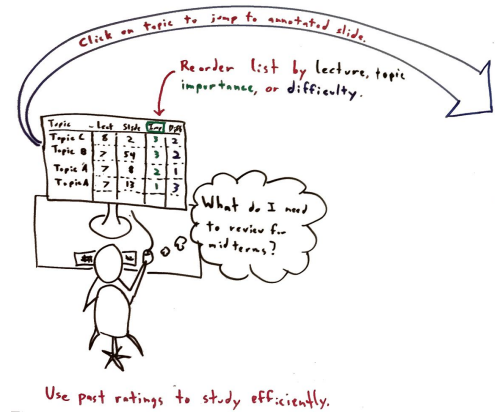 Click on topic to jump to annotated slide.
Reorder list by lecture, topic
importance, or difficulty.
Topic Lect Slide Imp Diff
Topic C 8 2 3 2
Topic B 7 54 3 2
Topic A 7 8 2 1
Topic A 7 13 1 3
What do I need
to review for
midterms?
Use past ratings to study efficiently.